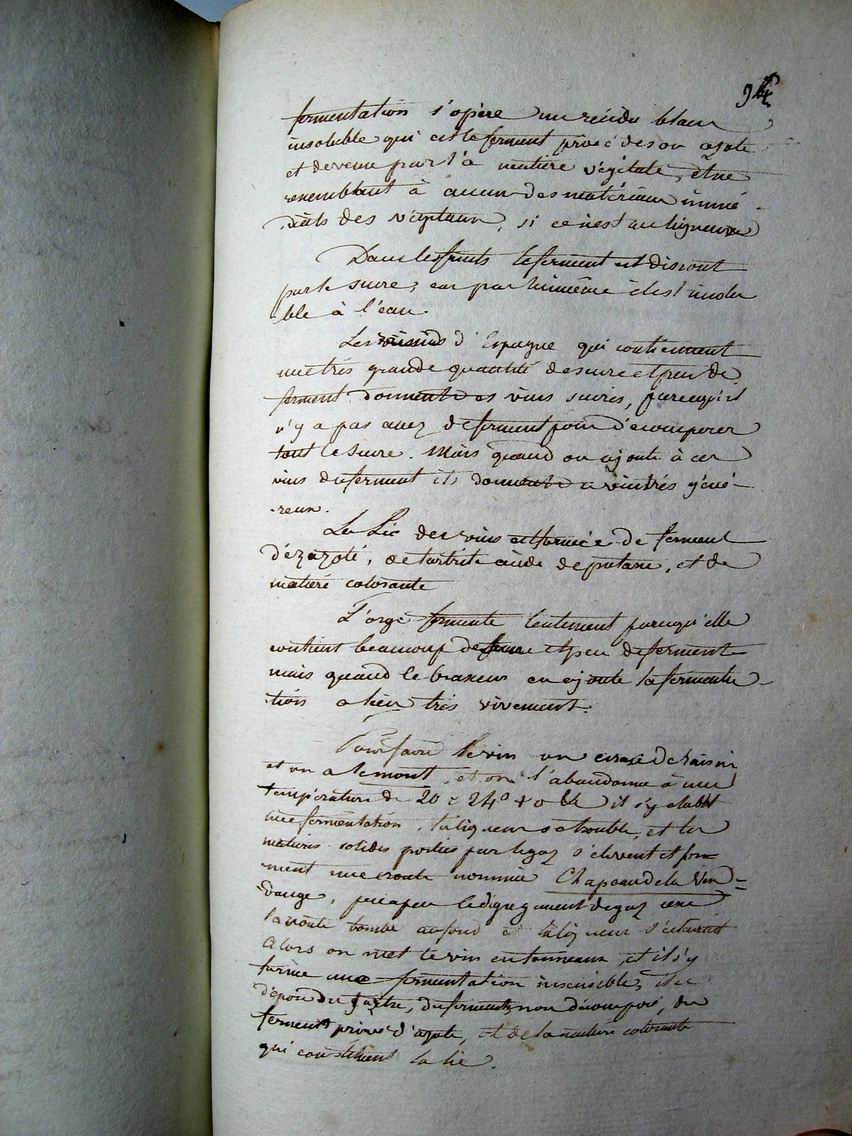 94
fermentation s'opère un résidu blanc
insoluble qui est le ferment privé de son azote
et devenu par là matière végétale, et ne
ressemblant à aucun des matériaux immé-
diats des végétaux, si ce n'est au ligneux
Dans les fruits le ferment est dissout
par le sucre, car par lui même il est insolu
ble à l'eau.
Les raisins d'Espagne qui contiennent
une très grande quantité de sucre et peu de
ferment donnent des vins sucrés, parcequ'il
n'y a pas assez de ferment pour décomposer
tout le sucre. Mais quand on ajoute à ces
vins du ferment ils donnent un vin très géné-
reux.
La Lie des vins est formée de ferment
dézazoté, de tartrite acide de potasse, et de
matière colorante
L'orge fermente lentement parcequ'elle
contient beaucoup de sucre et peu de ferment
mais quand le brasseur en ajoute la fermenta-
tion a lieu très vivement.
Pour faire le vin on écrase le raisin
et on a le mout, et on l'abandonne à une
température de 20 à 24° + 0 il s'y établit
une fermentation, la liqueur se trouble, et les
matières solides portées par le gaz s'élèvent et for-
ment une croute nommée Chapeau de la Ven=
dange, peu à peu le dégagement de gaz cesse
la croute tombe au fond et la liqueur s'éclaircit
Alors on met le vin en tonneaux et il s'y
forme une fermentation insensible, il se
dépose du tartre, du ferment non décomposé, du
ferment privé d'azote, et de la matière colorante
qui constituent la lie.